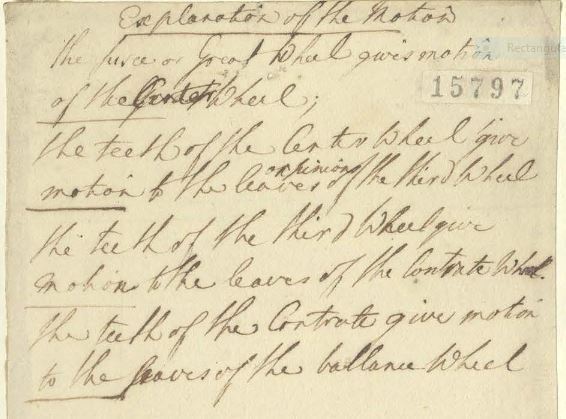 Explanation of the Motion
the fusee or Great Wheel gives motion
of the Center Wheel;
15797
the teeth of the Center Wheel give
or pinions
motion to the leaves of the third Wheel
the teeth of the third Wheel give
motion to the leaves of the Contrate Wheel.
the teeth of the Contrate give motion
to the leaves of the ballance Wheel
Rectangula